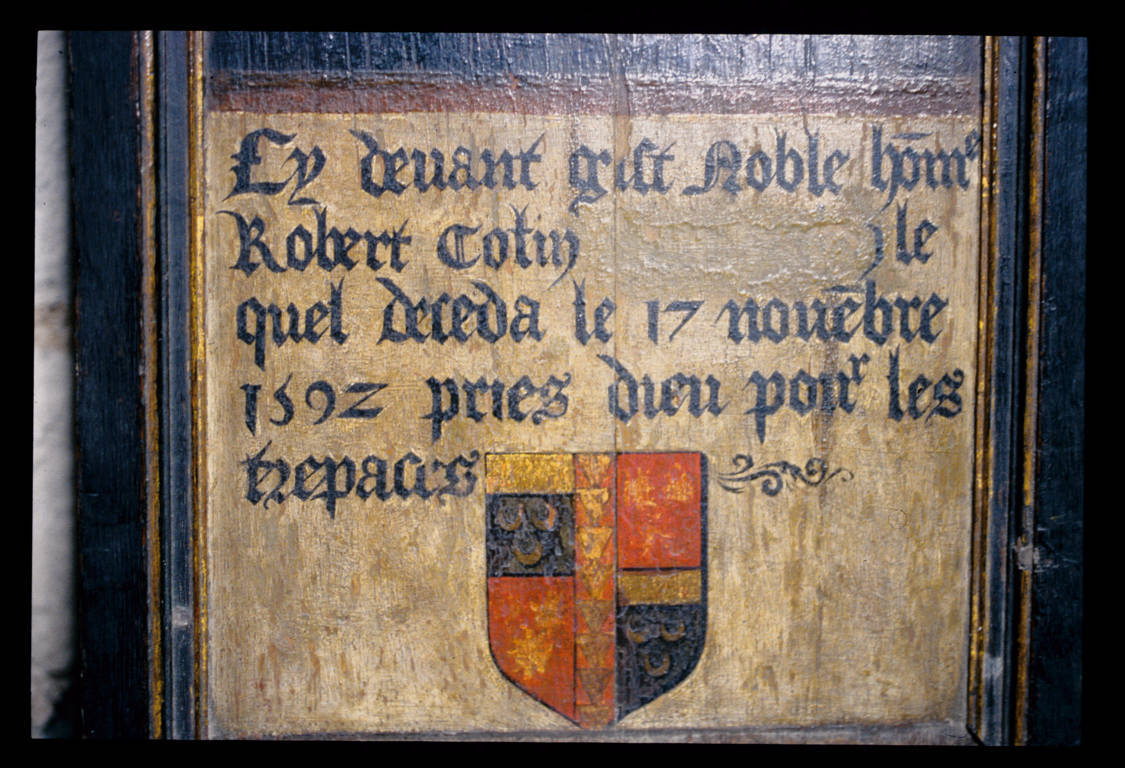 Cy devant gist Noble hōms
Robert Cotin le
quel deceda le 17 nouēbre
1592 pries dieu pour les
trepasses